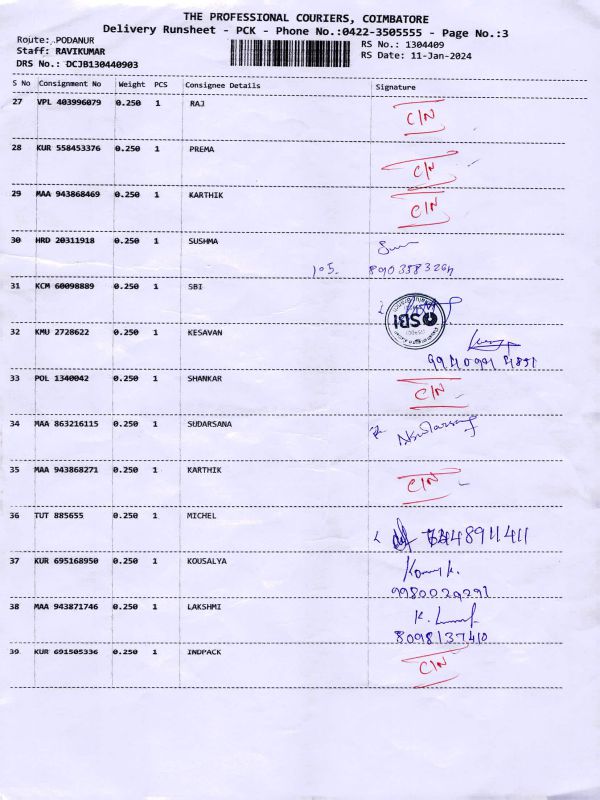 THE PROFESSIONAL COURIERS, COIMBATORE
Delivery Runsheet - PCK - Phone No.:0422-3505555 - Page No.:3
Route: PODANUR
RS No.: 1304409
Staff: RAVIKUMAR
RS Date: 11-Jan-2024
DRS No.: DCJB130440903
S No Consignment No Weight PCS Consignee Details Signature
27 VPL 403996079 0.250 1 RAJ C/N
28 KUR 558453376 0.250 1 PREMA C/N
29 MAA 943868469 0.250 1 KARTHIK C/N
30 HRD 20311918 0.250 1 SUSHMA
105.
31 KCM 60098889 0.250 1 SBI
SBI
32 KMU 2728622 0.250 1 KESAVAN
33 POL 1340042 0.250 1 SHANKAR C/N
34 MAA 863216115 0.250 1 SUDARSANA
35 MAA 943868271 0.250 1 KARTHIK C/N
36 TUT 885655 0.250 1 MICHEL
37 KUR 695168950 0.250 1 KOUSALYA
9980029291
38 MAA 943871746 0.250 1 LAKSHMI
8098137410
39 KUR 691505336 0.250 1 INDPACK C/N